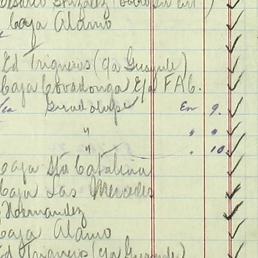 Caja Alamo
Ed Trigueros (ya Guayule)
Caja Covadonga E/a FAC.
Guadalupe En 9.
" " 9.
" " 10.
Caja Sta Catalina
Caja Las Mercedes
Hernandez
Caja Alamo
Ed Naranjo (ya Guayule)